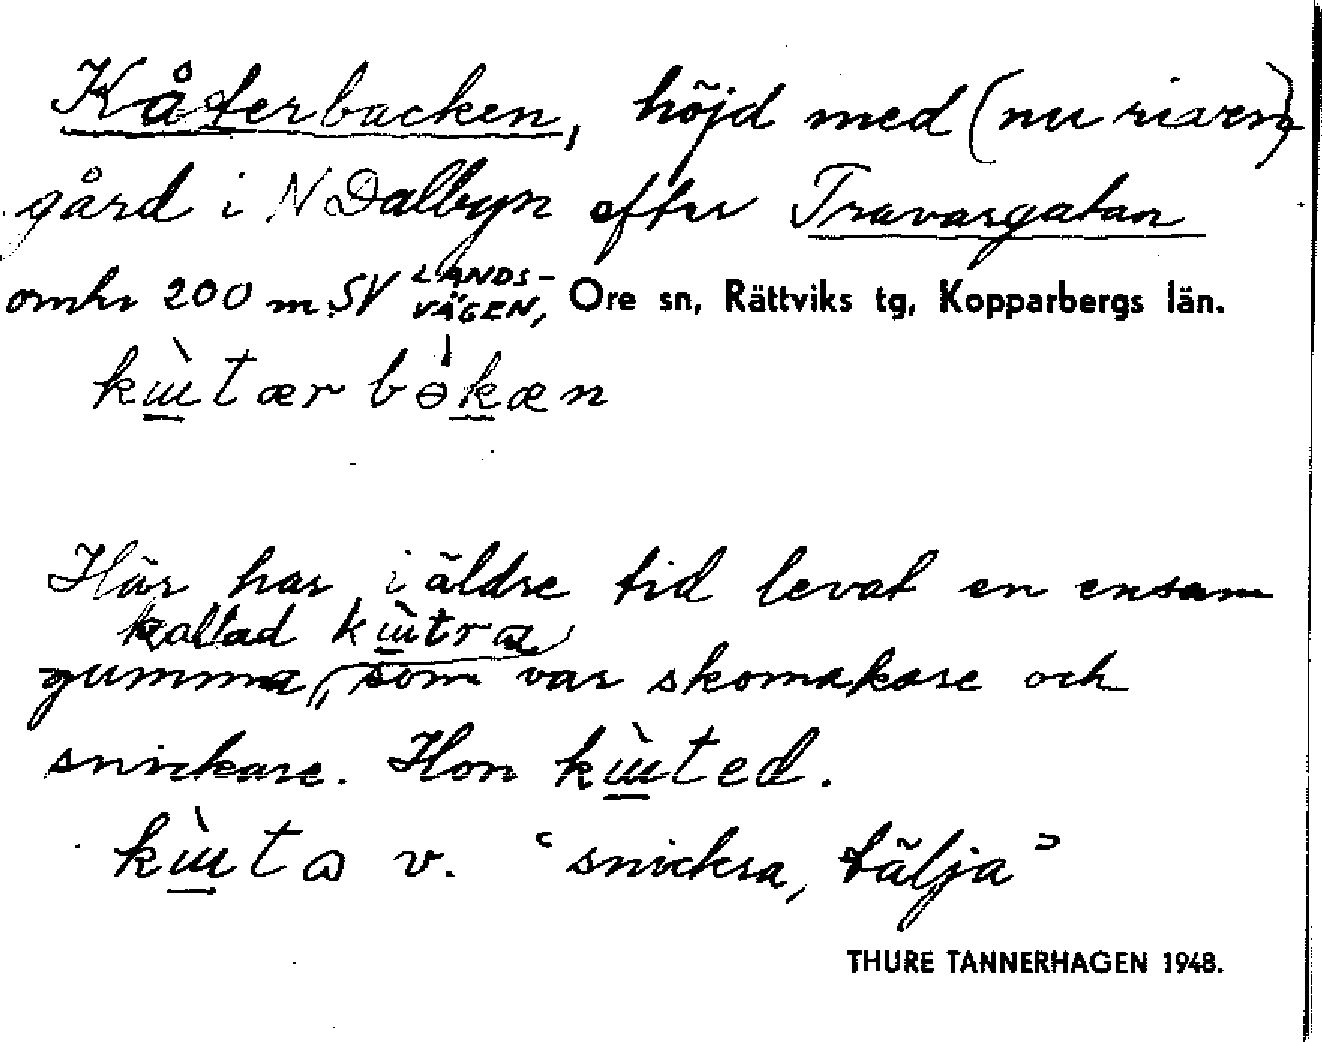 Kåterbacken, höjd med (nu riven)
gård i N Dalbyn efter Travargatan
omkr 200 m SV LANDS-
VÄGEN, Ore sn, Rättviks tg, Kopparbergs län.
Här har i äldre tid levat en ensam
kallad
gumma, som var skomakare och
snickare. Hon
v. "snickra, tälja"
THURE TANNERHAGEN 1948.